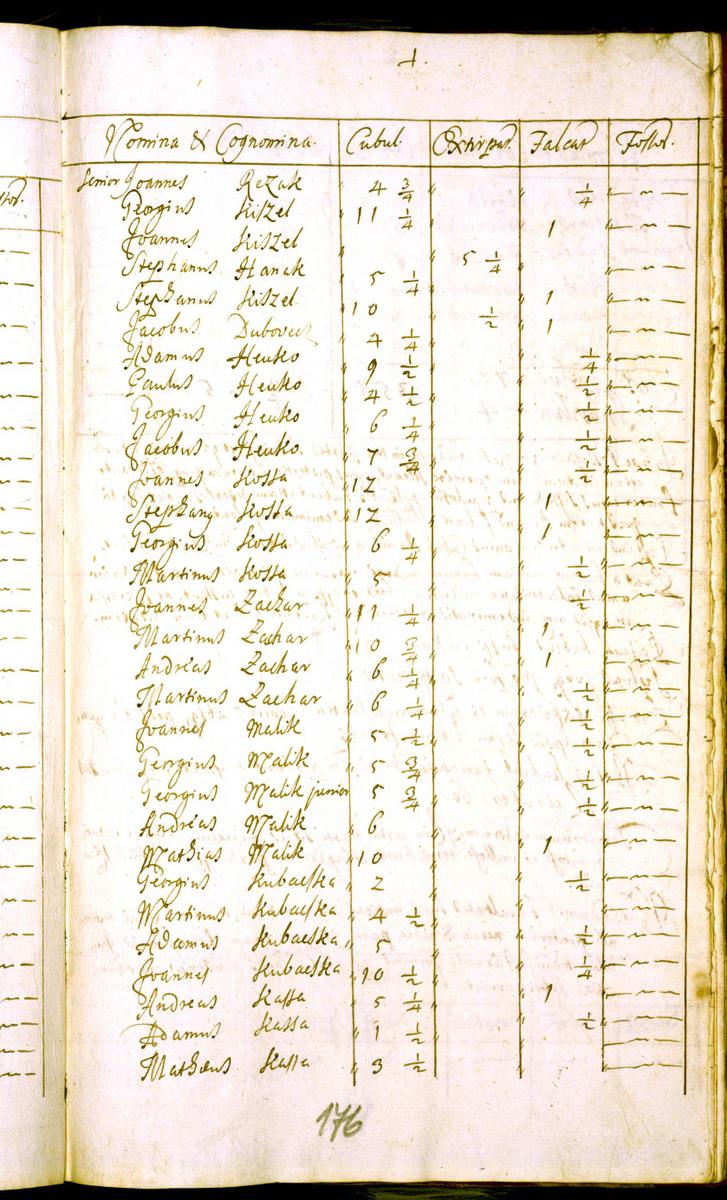 4.
Nomina & Cognomina. Cubul. Extirpat. Falcat Fossor.
Senior Joannes Rezak " 4 3/4 " " 1/4 " — " —
Georgius Kiszel " 11 1/4 " " 1 " — " —
Joannes Kiszel " " 5 1/4 " " — " —
Stephanus Hanak " 5 1/4 " " 1 " — " —
Stephanus Kiszel " 10 " 1/2 " 1 " — " —
Jacobus " 4 1/4 " " 1/4 " — " —
Adamus Henko " 9 1/2 " " 1/2 " — " —
Paulus Henko " 4 1/2 " " 1/2 " — " —
Georgius Henko " 6 1/4 " " 1/2 " — " —
Jacobus Henko " 7 3/4 " " 1/2 " — " —
Joannes Kossa " 12 " " 1 " — " —
Stephang Kossa " 12 " " 1 " — " —
Georgius Kossa " 6 1/4 " " 1/2 " — " —
Martinus Kossa " 5 " " 1/2 " — " —
Joannes Zachar " 11 1/4 " " 1 " — " —
Martinus Zachar " 10 3/4 " " 1 " — " —
Andreas Zachar " 6 1/4 " " 1/2 " — " —
Martinus Zachar " 6 1/4 " " 1/2 " — " —
Joannes Malik " 5 1/2 " " 1/2 " — " —
Georgius Malik " 5 3/4 " " 1/2 " — " —
Georgius Malik junior " 5 3/4 " " 1/2 " — " —
Andreas Malik " 6 " " 1 " — " —
Mathias Malik " 10 " " 1/2 " — " —
Georgius Kubacska " 2 " " " — " —
Martinus Kubacska " 4 1/2 " " 1/2 " — " —
Adamus Kubacska " 5 " " 1/4 " — " —
Joannes Kubacska " 10 1/2 " " 1 " — " —
Andreas Kassa " 5 1/4 " " 1/2 " — " —
Adamus Kassa " 1 1/2 " " " — " —
Mathaeus Kassa " 3 1/2 " " " — " —
176